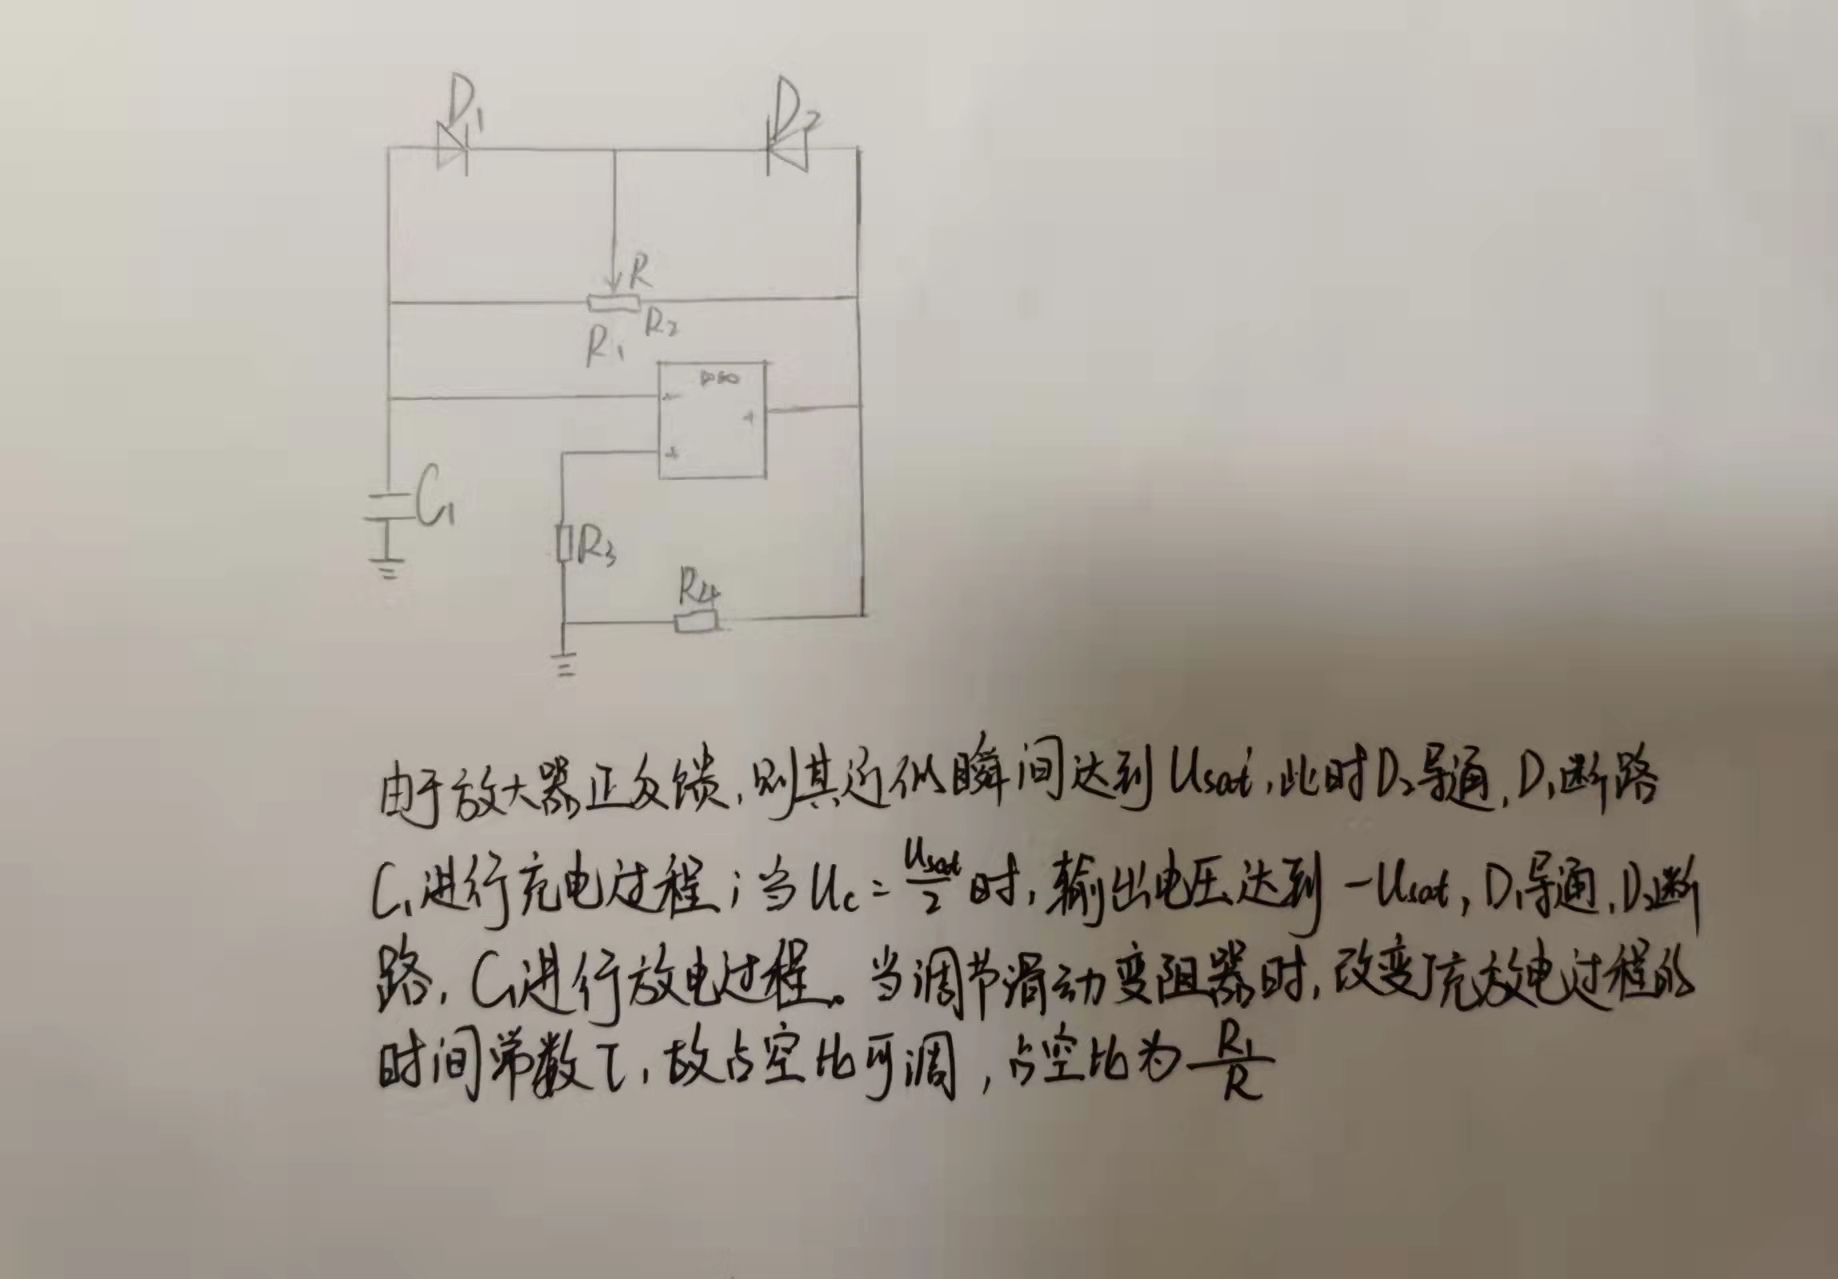 D₁ D₂
R
R₂
R₁
▷∞
-
+
+
C₁
R₃
R₄
由于放大器正反馈,则其近似瞬间达到Usat,此时D₂导通,D₁断路
C₁进行充电过程;当Uc=Usat/2时,输出电压达到-Usat,D₁导通,D₂断
路,C₁进行放电过程。当调节滑动变阻器时,改变了充放电过程的
时间常数τ,故占空比可调,占空比为R₁/R